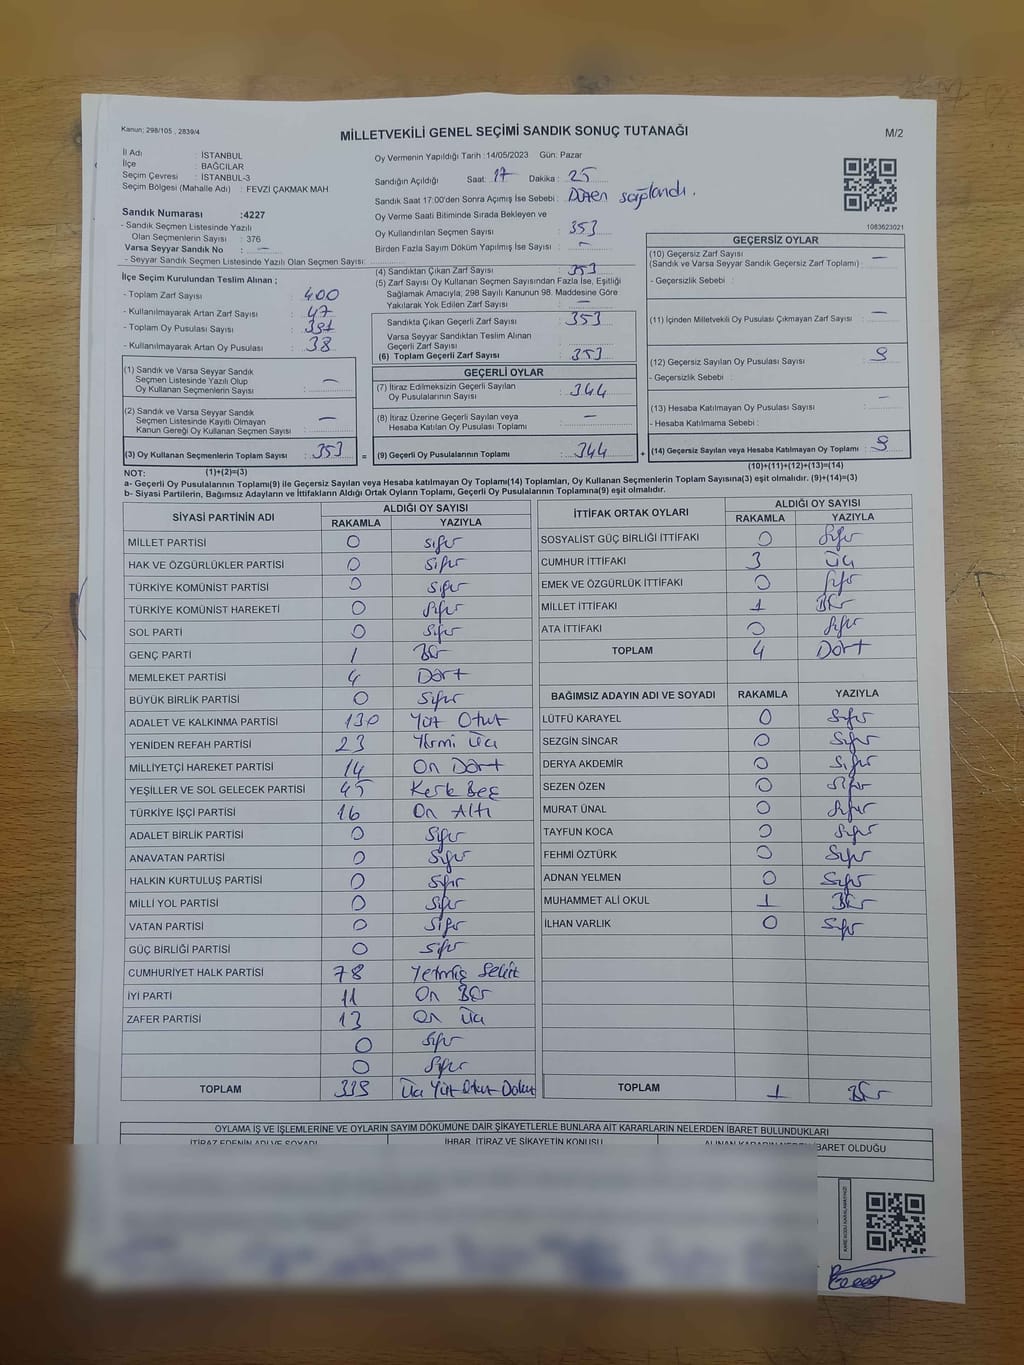 Kanun; 298/105 , 2839/4
MİLLETVEKİLİ GENEL SEÇİMİ SANDIK SONUÇ TUTANAĞI
M/2
İl Adı : İSTANBUL
İlçe : BAĞCILAR
Seçim Çevresi : İSTANBUL-3
Seçim Bölgesi (Mahalle Adı) : FEVZİ ÇAKMAK MAH
Oy Vermenin Yapıldığı Tarih :14/05/2023 Gün: Pazar
Sandığın Açıldığı Saat: 17 Dakika : 25
Sandık Saat 17:00'den Sonra Açımış İse Sebebi : Düzen sağlandı.
Oy Verme Saati Bitiminde Sırada Bekleyen ve
Oy Kullandırılan Seçmen Sayısı : 353
Birden Fazla Sayım Döküm Yapılmış İse Sayısı : –
1083623021
Sandık Numarası :4227
- Sandık Seçmen Listesinde Yazılı
Olan Seçmenlerin Sayısı : 376
Varsa Seyyar Sandık No : –
- Seyyar Sandık Seçmen Listesinde Yazılı Olan Seçmen Sayısı:
İlçe Seçim Kurulundan Teslim Alınan ;
- Toplam Zarf Sayısı : 400
- Kullanılmayarak Artan Zarf Sayısı : 47
- Toplam Oy Pusulası Sayısı : 391
- Kullanılmayarak Artan Oy Pusulası : 38
(1) Sandık ve Varsa Seyyar Sandık
Seçmen Listesinde Yazılı Olup
Oy Kullanan Seçmenlerin Sayısı : –
(2) Sandık ve Varsa Seyyar Sandık
Seçmen Listesinde Kayıtlı Olmayan
Kanun Gereği Oy Kullanan Seçmen Sayısı : –
(3) Oy Kullanan Seçmenlerin Toplam Sayısı : 353 =
(4) Sandıktan Çıkan Zarf Sayısı : 353
(5) Zarf Sayısı Oy Kullanan Seçmen Sayısından Fazla İse, Eşitliği
Sağlamak Amacıyla; 298 Sayılı Kanunun 98. Maddesine Göre
Yakılarak Yok Edilen Zarf Sayısı : –
Sandıkta Çıkan Geçerli Zarf Sayısı : 353
Varsa Seyyar Sandıktan Teslim Alınan
Geçerli Zarf Sayısı :
(6) Toplam Geçerli Zarf Sayısı : 353
GEÇERLİ OYLAR
(7) İtiraz Edilmeksizin Geçerli Sayılan
Oy Pusulalarının Sayısı : 344
(8) İtiraz Üzerine Geçerli Sayılan veya
Hesaba Katılan Oy Pusulası Toplamı : –
(9) Geçerli Oy Pusulalarının Toplamı : 344 +
GEÇERSİZ OYLAR
(10) Geçersiz Zarf Sayısı
(Sandık ve Varsa Seyyar Sandık Geçersiz Zarf Toplamı) : –
- Geçersizlik Sebebi :
(11) İçinden Milletvekili Oy Pusulası Çıkmayan Zarf Sayısı : –
(12) Geçersiz Sayılan Oy Pusulası Sayısı : 9
- Geçersizlik Sebebi :
(13) Hesaba Katılmayan Oy Pusulası Sayısı : –
- Hesaba Katılmama Sebebi :
(14) Geçersiz Sayılan veya Hesaba Katılmayan Oy Toplamı : 9
NOT: (1)+(2)=(3)
(10)+(11)+(12)+(13)=(14)
a- Geçerli Oy Pusulalarının Toplamı(9) ile Geçersiz Sayılan veya Hesaba Katılmayan Oy Toplamı(14) Toplamları, Oy Kullanan Seçmenlerin Toplam Sayısına(3) eşit olmalıdır. (9)+(14)=(3)
b- Siyasi Partilerin, Bağımsız Adayların ve İttifakların Aldığı Ortak Oyların Toplamı, Geçerli Oy Pusulalarının Toplamına(9) eşit olmalıdır.
SİYASİ PARTİNİN ADI ALDIĞI OY SAYISI
RAKAMLA YAZIYLA
MİLLET PARTİSİ 0 Sıfır
HAK VE ÖZGÜRLÜKLER PARTİSİ 0 Sıfır
TÜRKİYE KOMÜNİST PARTİSİ 0 Sıfır
TÜRKİYE KOMÜNİST HAREKETİ 0 Sıfır
SOL PARTİ 0 Sıfır
GENÇ PARTİ 1 Bir
MEMLEKET PARTİSİ 4 Dört
BÜYÜK BİRLİK PARTİSİ 0 Sıfır
ADALET VE KALKINMA PARTİSİ 130 Yüz Otuz
YENİDEN REFAH PARTİSİ 23 Yirmi Üç
MİLLİYETÇİ HAREKET PARTİSİ 14 On Dört
YEŞİLLER VE SOL GELECEK PARTİSİ 45 Kırk Beş
TÜRKİYE İŞÇİ PARTİSİ 16 On Altı
ADALET BİRLİK PARTİSİ 0 Sıfır
ANAVATAN PARTİSİ 0 Sıfır
HALKIN KURTULUŞ PARTİSİ 0 Sıfır
MİLLİ YOL PARTİSİ 0 Sıfır
VATAN PARTİSİ 0 Sıfır
GÜÇ BİRLİĞİ PARTİSİ 0 Sıfır
CUMHURİYET HALK PARTİSİ 78 Yetmiş Sekiz
İYİ PARTİ 11 On Bir
ZAFER PARTİSİ 13 On Üç
0 Sıfır
0 Sıfır
TOPLAM 339 Üç Yüz Otuz Dokuz
İTTİFAK ORTAK OYLARI ALDIĞI OY SAYISI
RAKAMLA YAZIYLA
SOSYALİST GÜÇ BİRLİĞİ İTTİFAKI 0 Sıfır
CUMHUR İTTİFAKI 3 Üç
EMEK VE ÖZGÜRLÜK İTTİFAKI 0 Sıfır
MİLLET İTTİFAKI 1 Bir
ATA İTTİFAKI 0 Sıfır
TOPLAM 4 Dört
BAĞIMSIZ ADAYIN ADI VE SOYADI RAKAMLA YAZIYLA
LÜTFÜ KARAYEL 0 Sıfır
SEZGİN SİNCAR 0 Sıfır
DERYA AKDEMİR 0 Sıfır
SEZEN ÖZEN 0 Sıfır
MURAT ÜNAL 0 Sıfır
TAYFUN KOCA 0 Sıfır
FEHMİ ÖZTÜRK 0 Sıfır
ADNAN YELMEN 0 Sıfır
MUHAMMET ALİ OKUL 1 Bir
İLHAN VARLIK 0 Sıfır
TOPLAM 1 Bir
OYLAMA İŞ VE İŞLEMLERİNE VE OYLARIN SAYIM DÖKÜMÜNE DAİR ŞİKAYETLERLE BUNLARA AİT KARARLARIN NELERDEN İBARET BULUNDUKLARI
İTİRAZ EDENİN ADI VE SOYADI İHBAR, İTİRAZ VE ŞİKAYETİN KONUSU ALINAN KARARIN NEDEN İBARET OLDUĞU